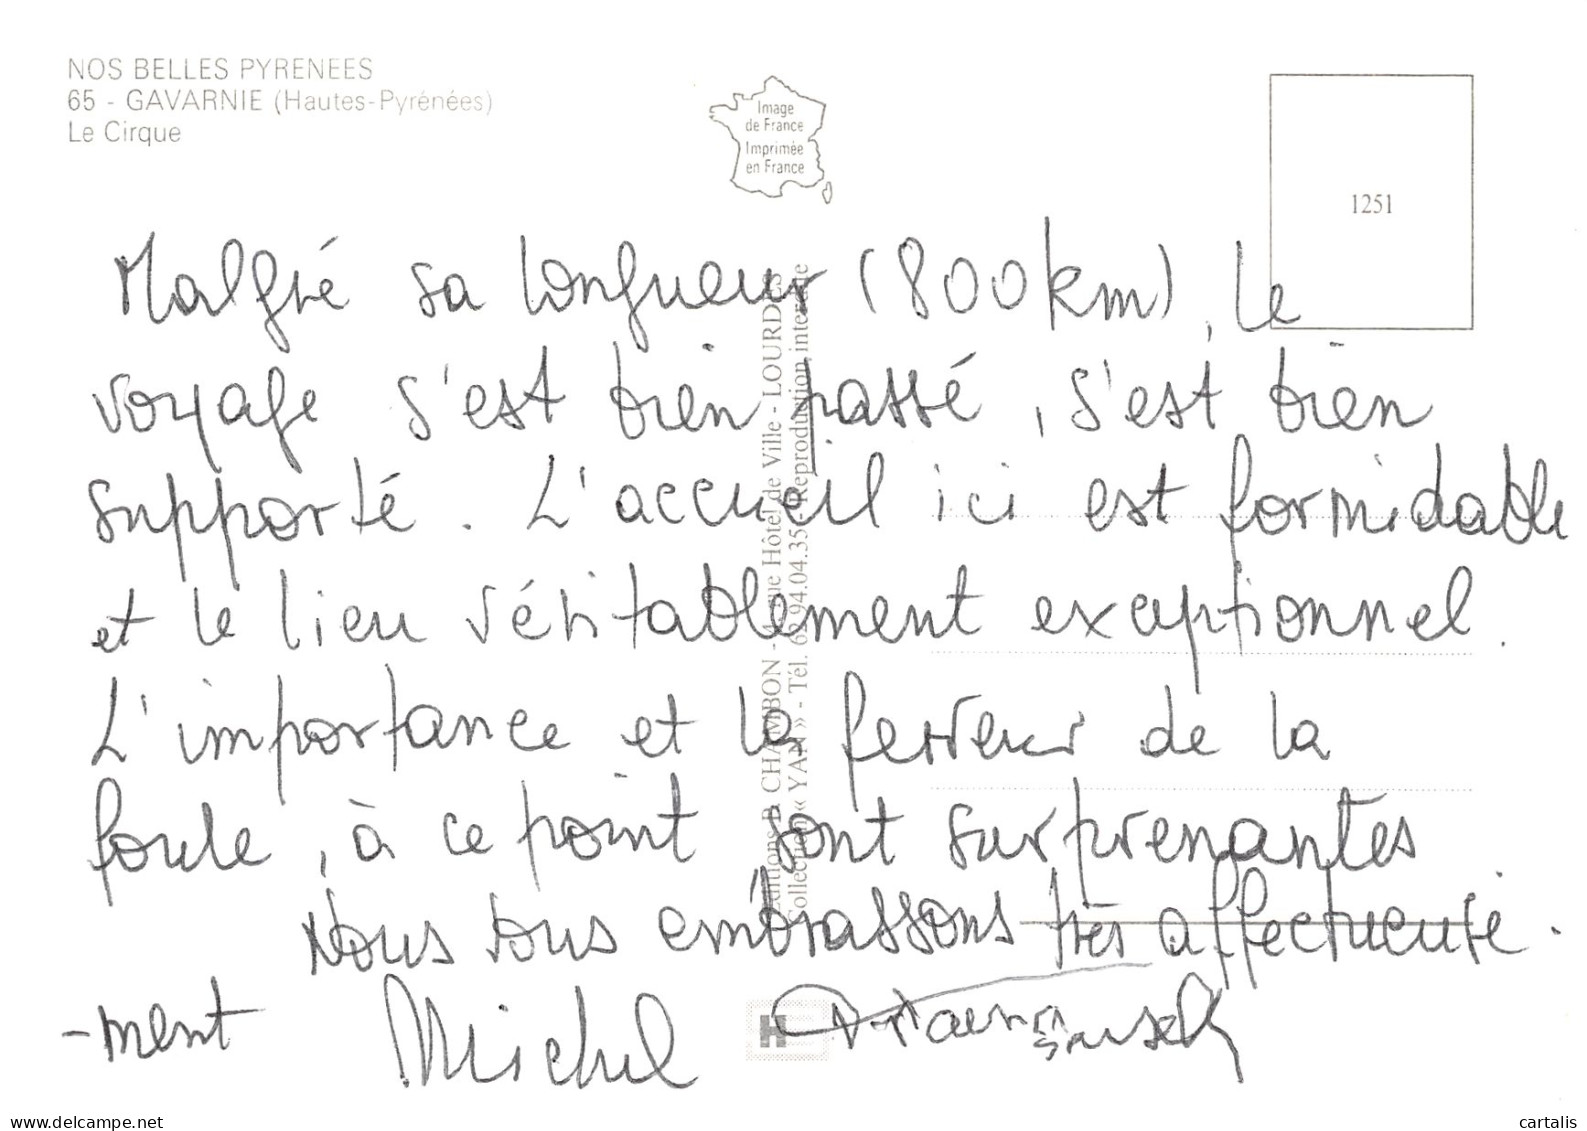 NOS BELLES PYRENEES
65 - GAVARNIE (Hautes-Pyrénées)
Le Cirque
Image
de France
Imprimée
en France
1251
Malgré sa longueur (800 km), le
voyage s'est bien passé, s'est bien
supporté. L'accueil ici est formidable
et le lieu véritablement exceptionnel.
L'importance et la ferveur de la
foule, à ce point sont surprenantes
Nous vous embrassons très affectueuse
-ment Michel
Editions B. CHAMBON - rue Hôtel de Ville - LOURDES
Collection « YAN » - Tél. 62.94.04.35 - Reproduction interdite
H
www.delcampe.net
cartalis